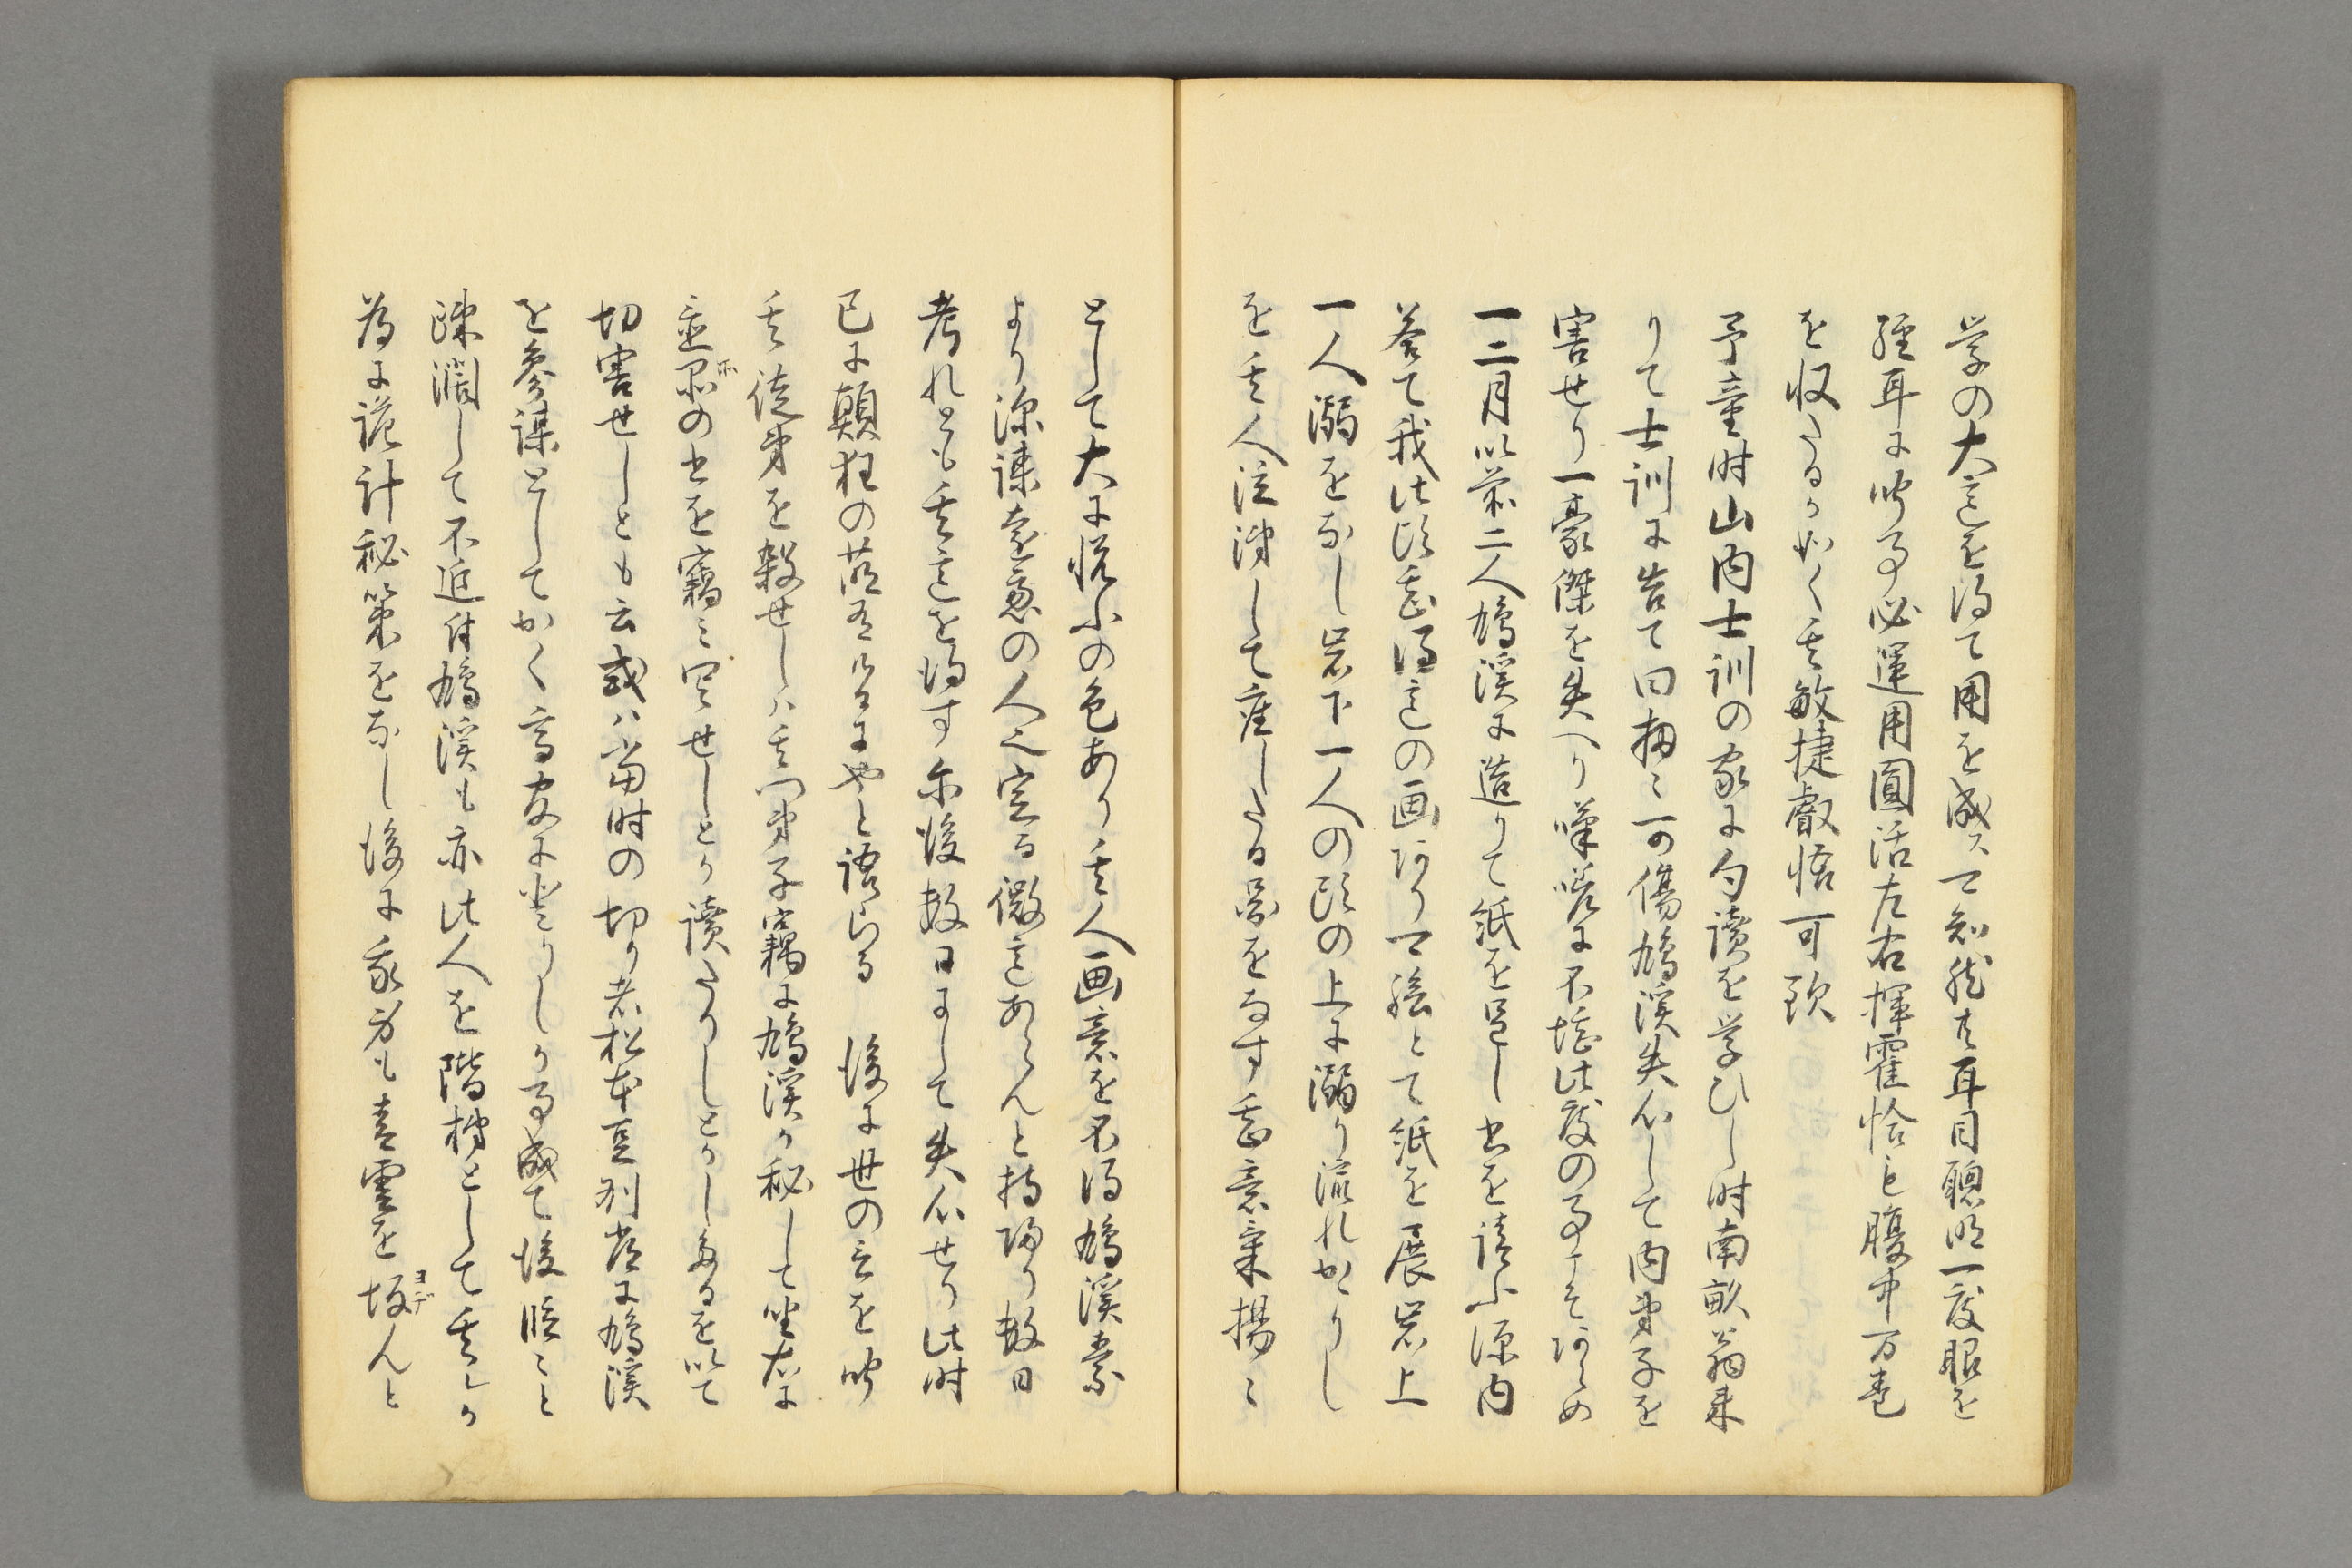 学の大意を得て用を成スて知然夫耳目聰明一度眼を
経耳に聞事必運用圓活左右揮霍恰も腹中万巻
を収たるか如く其敏捷叡悟可歎
予童時山内士訓の家に句讀を学ひし時南畝翁来
りて士訓に告て曰扨々可傷鳩溪失心して内弟子を
害せり一豪傑を失へり嘆嗟に不堪此度の事こそあらめ
一二月以前二人鳩溪に造りて紙を呈し書を請ふ源内
答て我此頃甚得意の画ありて絵とて紙を展岩上
一人溺をなし岩下一人の頭の上に溺り流れかゝりし
を其人泣涕して座したる図をなす甚意気揚々
として大に悦ふの色あり其人画意を不得鳩溪素
より深謀遠慮の人也定る微意あらんと持帰り数日
考れとも其意を得す尓後数日にして失心せり此時
已に顛狂の萌有しにやと語らる　後に世の言を聞
其徒弟を殺せしハ其門弟子竊に鳩溪か秘して坐右に
置ホの書を竊ミ写せしとか讀たりしとかしぬるを以て
切害せしとも云或ハ當時の切り者松本豆州常に鳩溪
を参謀としてかく高官に登りしか事成て後順々と
疎濶して不近付鳩溪も亦此人を階梯として其人か
為に詭計秘策をなし後に我身も青雲を攀ヨデんと